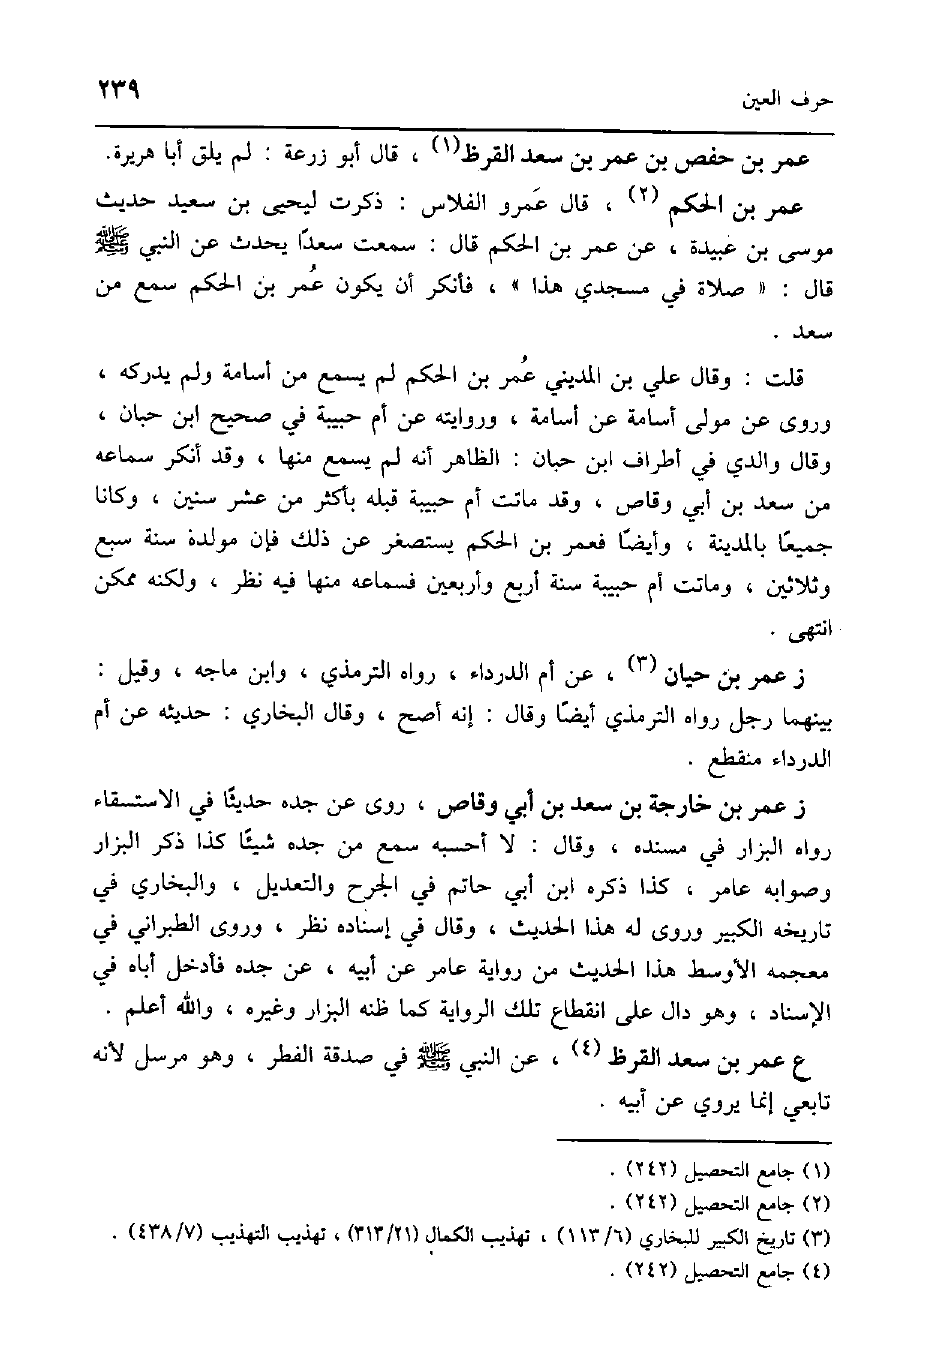 حرف العين
٢٣٩
عمر بن حفص بن عمر بن سعد القرظ(١) ، قال أبو زرعة : لم يلق أبا هريرة.
عمر بن الحكم (٢) ، قال عَمرو الفلاس : ذكرت ليحيى بن سعيد حديث
موسى بن عبيدة ، عن عمر بن الحكم قال : سمعت سعدًا يحدث عن النبي ﷺ
قال : « صلاة في مسجدي هذا » ، فأنكر أن يكون عُمر بن الحكم سمع من
سعد .
قلت : وقال علي بن المديني عُمر بن الحكم لم يسمع من أسامة ولم يدركه ،
وروى عن مولى أسامة عن أسامة ، وروايته عن أم حبيبة في صحيح ابن حبان ،
وقال والدي في أطراف ابن حبان : الظاهر أنه لم يسمع منها ، وقد أنكر سماعه
من سعد بن أبي وقاص ، وقد ماتت أم حبيبة قبله بأكثر من عشر سنين ، وكانا
جميعًا بالمدينة ، وأيضًا فعمر بن الحكم يستصغر عن ذلك فإن مولدة سنة سبع
وثلاثين ، وماتت أم حبيبة سنة أربع وأربعين فسماعه منها فيه نظر ، ولكنه ممكن
انتهى .
ز عمر بن حيان (٣) ، عن أم الدرداء ، رواه الترمذي ، وابن ماجه ، وقيل :
بينهما رجل رواه الترمذي أيضًا وقال : إنه أصح ، وقال البخاري : حديثه عن أم
الدرداء منقطع .
ز عمر بن خارجة بن سعد بن أبي وقاص ، روى عن جده حديثًا في الاستسقاء
رواه البزار في مسنده ، وقال : لا أحسبه سمع من جده شيئًا كذا ذكر البزار
وصوابه عامر ، كذا ذكره ابن أبي حاتم في الجرح والتعديل ، والبخاري في
تاريخه الكبير وروى له هذا الحديث ، وقال في إسناده نظر ، وروى الطبراني في
معجمه الأوسط هذا الحديث من رواية عامر عن أبيه ، عن جده فأدخل أباه في
الإسناد ، وهو دال على انقطاع تلك الرواية كما ظنه البزار وغيره ، والله أعلم .
ع عمر بن سعد القرظ (٤) ، عن النبي ﷺ في صدقة الفطر ، وهو مرسل لأنه
تابعي إنما يروي عن أبيه .
(١) جامع التحصيل (٢٤٢) .
(٢) جامع التحصيل (٢٤٢) .
(٣) تاريخ الكبير للبخاري (١١٣/٦) ، تهذيب الكمال (٣١٣/٢١) ، تهذيب التهذيب (٤٣٨/٧) .
(٤) جامع التحصيل (٢٤٢) .